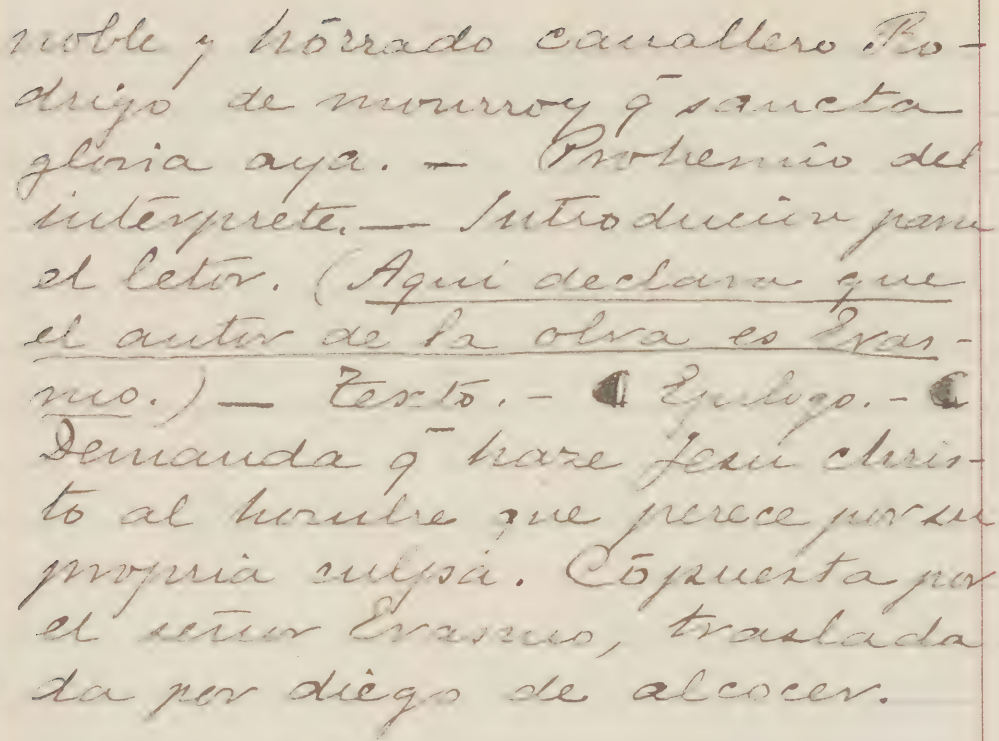 noble y hōrrado cauallero Ro-
drigo de monrroy q̄ sancta
gloria aya. — Prohemio del
intērprete. — Introduciōn para
el letōr. (Aqui declara que
el autor de la obra es Eras-
mo.) — Texto. - ⸿ Epilogo. - ⸿
Demanda q̄ haze Jesu chris-
to al hombre que perece por su
propria culpa. Cōpuesta por
el señor Erasmo, traslada
da por diēgo de alcocer.